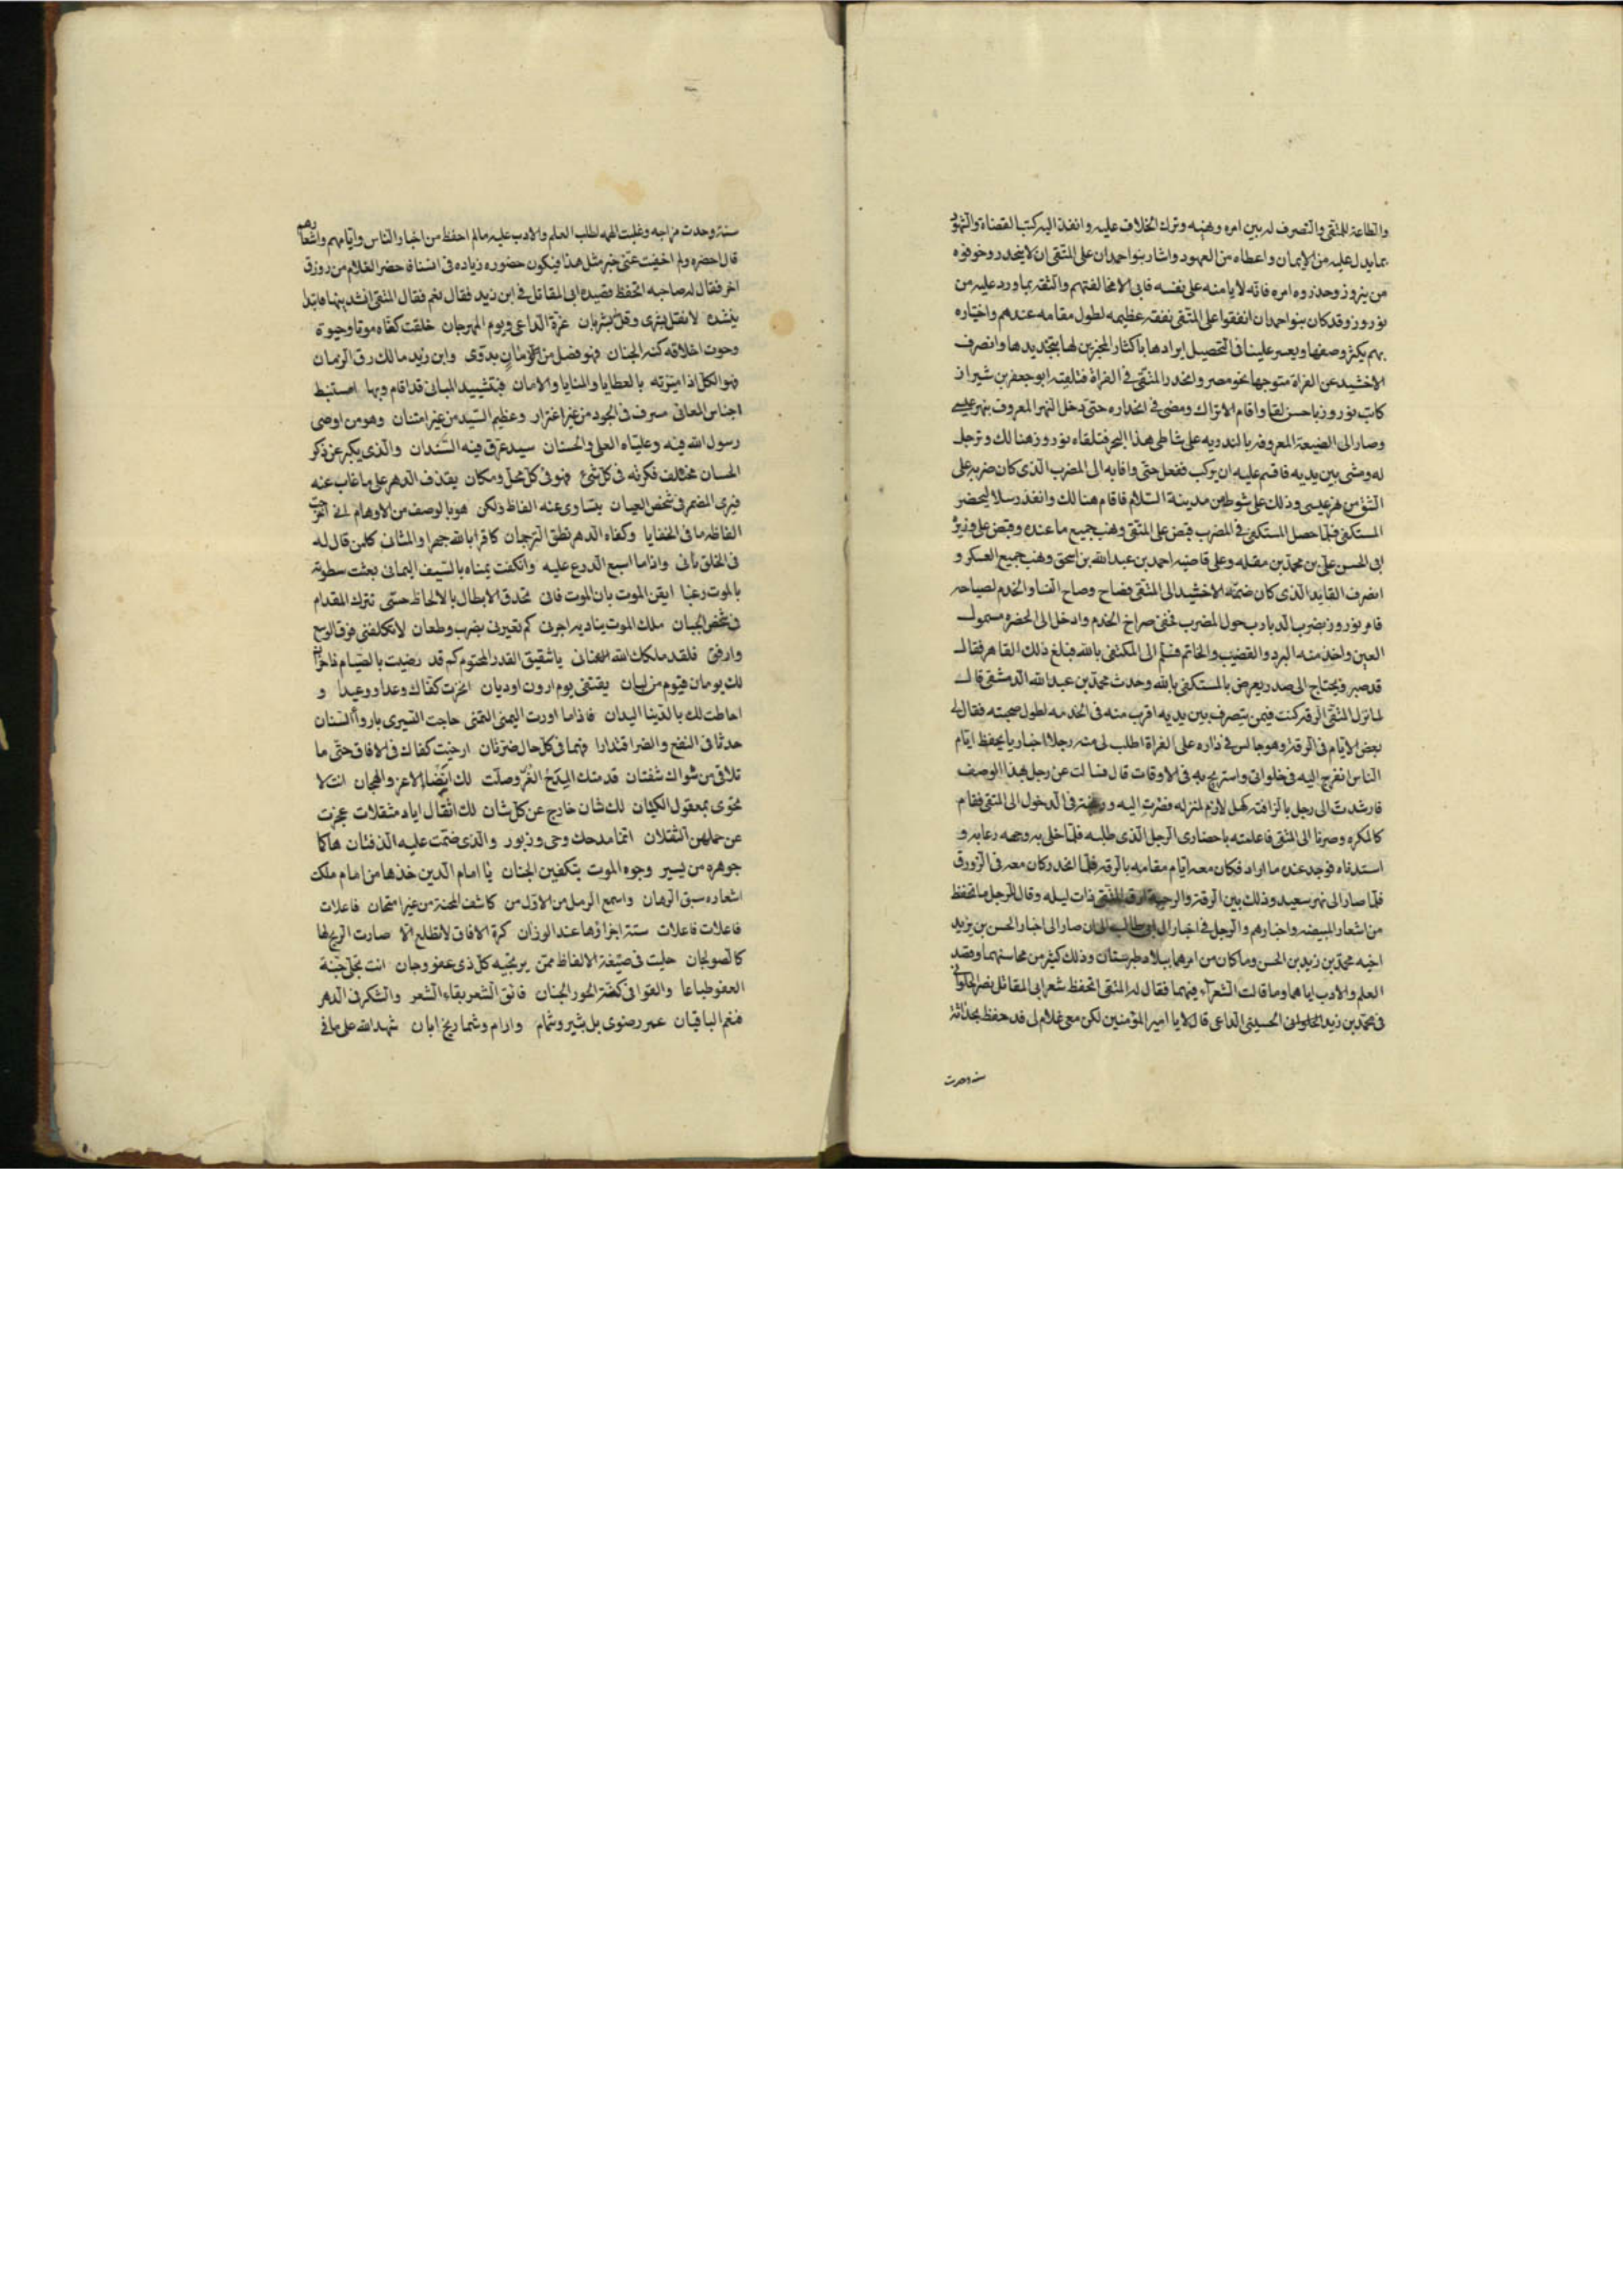 والطاعة للمتقى والتصرف له بين امره ونهيه وترك الخلاف عليه وانفذ اليه كتب القضاة والشهود
بما بذل عليه من الايمان واعطاه من العهود واشار بنو احمدان على المتقى ان لا ينحدر وخوفوه
من نوروز وحذروه امره فانه لا يامنه على نفسه فابى الا مخالفتهم والثقة بما ورد عليه من
نوروز وقد كان بنو احمدان انفقوا على المتقى نفقه عظيمه لطول مقامه عندهم واختياره
بهم يكثر وصفها ويعسر علينا فى التحصيل ايرادها باكثار المخبرين لها بتحديدها وانصرف
الاخشيد عن الفراة متوجها نحو مصر وانحدر المتقى فى الفراة فتلقيه ابو جعفر بن شيراز
كاتب نوروز باحسن لقا واقام الاتراك ومضى فى انحداره حتى دخل النهر المعروف بنهر عيسى
وصار الى الضيعة المعروفه بالسنديه على شاطى هذا البحر فتلقاه نوروز هنالك وترجل
له ومشى بين يديه فاقسم عليه ان يركب ففعل حتى وافا به الى المضرب الذى كان ضربه على
الشق من نهر عيسى وذلك على شوط من مدينة السلام فاقام هنالك وانفذ رسلا ليحضر
المستكفى فلما حصل المستكفى فى المضرب قبض على المتقى ونهب جميع ما عنده وقبض على وزيره
ابى الحسن على بن محمد بن مقله وعلى قاضيه احمد بن عبد الله بن اسحق ونهب جميع العسكر و
انصرف القايد الذى كان ضمنه الاخشيد الى المتقى فصاح وصاح النسا والخدم لصياحه
فامر نوروز بضرب الدبادب حول المضرب فخفى صراخ الخدم وادخل الى الحضره مسمول
العين واخذ منه البرد والقضيب والخاتم فسلم الى المكتفى بالله فبلغ ذلك القاهر فقال
قد صبر ويحتاج الى صدر يعرض بالمستكفى بالله وحدث محمد بن عبد الله الدمشقى قال
لما نزل المتقى الرقه كنت فيمن يتصرف بين يديه اقرب منه فى الخدمه لطول صحبته فقال لى
بعض الايام فى الرقه وهو جالس فى داره على الفراة اطلب لى منه رجلا اخباريا يحفظ ايام
الناس انفرج اليه فى خلواتى واستريح به فى الاوقات قال فسالت عن رجل بهذا الوصف
فارشدت الى رجل بالرافقه كهل لازم لمنزله فصرت اليه ورغبته فى الدخول الى المتقى فقام
كالمكره وصرنا الى المتقى فاعلمته باحضارى الرجل الذى طلبه فلما خلى به وجهه دعا به و
استدناه فوجد عنده ما اراد فكان معه ايام مقامه بالرقه فلما انحدر كان معه فى الزورق
فلما صار الى نهر سعيد وذلك بين الرقة والرحبة ارق المتقى ذات ليله وقال للرجل ما تحفظ
من اشعار المبيضه واخبارهم والرجل فى اخبار ال ابى طالب الى ان صار الى اخبار الحسن بن يزيد
اخيه محمد بن زيد بن الحسن وما كان من امرهما ببلاد طبرستان وذلك كثير من محاسنهما وقصد
العلم والادب اياهما وما قالت الشعراء فيهما فقال له المتقى اتحفظ شعر ابى المقاتل نصر الحلوانى
فى محمد بن زيد الحلوانى الحسينى الداعى قال لا يا امير المؤمنين لكن معى غلام لى قد حفظ بحداثة
سنه وحدت
سنه وحدت مزاجه وغلبت الهمه لطلب العلم والادب عليه ما لم احفظ من اخبار الناس وايامهم واشعارهم
قال احضره ولم اخفيت عنى خبر مثل هذا فيكون حضوره زياده فى انسنا فاحضر الغلام من زورق
اخر فقال له صاحبه اتحفظ قصيده ابى المقاتل فى ابن زيد فقال نعم فقال المتقى انشدنيها فابتدا
ينشده لا تقل بشرى وقل بشريان غرة الداعى ويوم المهرجان خلقت كفاه موتا وحيوة
وحوت اخلاقه كنه الجنان فهو فضل من الزمان بدوى وابن زيد مالك رق الزمان
فهو الكل اذا ميزته بالعطايا والمنايا والامان فبتشييد المبانى قد اقام وبها استنبط
اجناس المعانى مسرف فى الجود من غير اغترار وعظيم السيد من غير امتنان وهو من اوصى
رسول الله فيه وعلياه العلى والحسنان سيد عرق فيه السندان والذى يكبر عن ذكر
الحسان مختلف فكرته فى كل شئ فهو فى كل محل ومكان يقذف الدهر على ما غاب عنه
فيرى المضمر فى شخص العيان يتساوى عنه الفاظ ولكن هو بالوصف من الاوهام لى اخر
الفاظه ما فى الخفايا وكفاه الدهر نطق الترجمان كافرا بالله جهرا والمثانى كل من قال له
فى الخلق ثانى واذا ما اسبع الدرع عليه وانكفت يمناه بالسيف اليمانى بعثت سطوته
بالموت رعبا ايقن الموت بان الموت فان تحدق الابطال بالالحاظ حتى تترك المقدام
فى شخص الجبان ملك الموت يناديه اجرنى كم تعيرنى بضرب وطعان لا تكلفنى فوق الوسع
وارفق فلقد ملكك الله عنانى يا شقيق القدر المحتوم كم قد رضيت بالصيام فاخران
لك يومان فيوم من ليان يقتفى يوم ارون اوديان انجزت كفاك وعدا ووعيدا و
احاطت لك بالدنيا اليدان فاذا ما اورت اليمنى اليمنى حاجت اليسرى باروا السنان
حدثا فى النفع والضر اقتدارا فهما فى كل حال ضرتان ارخيت كفاك فى الافاق حتى ما
تلاقى من شواك شفتان قد متك المدح الغر وصلت لك ايضا الاعز والهجان انت لا
تحوى بمعقول الكيان لك شان خارج عن كل شان لك اثقال اياد مثقلات عجزت
عن حملهن الثقلان انما مدحك وحى وزبور والذى ضمت عليه الدفتان هاكها
جوهره من يسير وجوه الموت بتكفين الجنان يا امام الدين خذها من امام ملك
اشعاره سبق الرهان واسمع الرمل من الاول من كاشف المحنة من غير امتحان فاعلات
فاعلات فاعلات ستة اجزاؤها عند الوزان كرة الافاق لا تطلع الا صارت الريح لها
كالصولجان حليت فى صيغة الالفاظ ممن يرتجيه كل ذى عفو وجان انت تحكى جنة
العفو طباعا والقوافى كفة الحور الجنان فابق الشعر بقاء الشعر والشكر فى الدهر
فنعم الباقيان عمر رضوى بل بثير وشمام وارام وشماريخ ابان شهد الله على ما فى